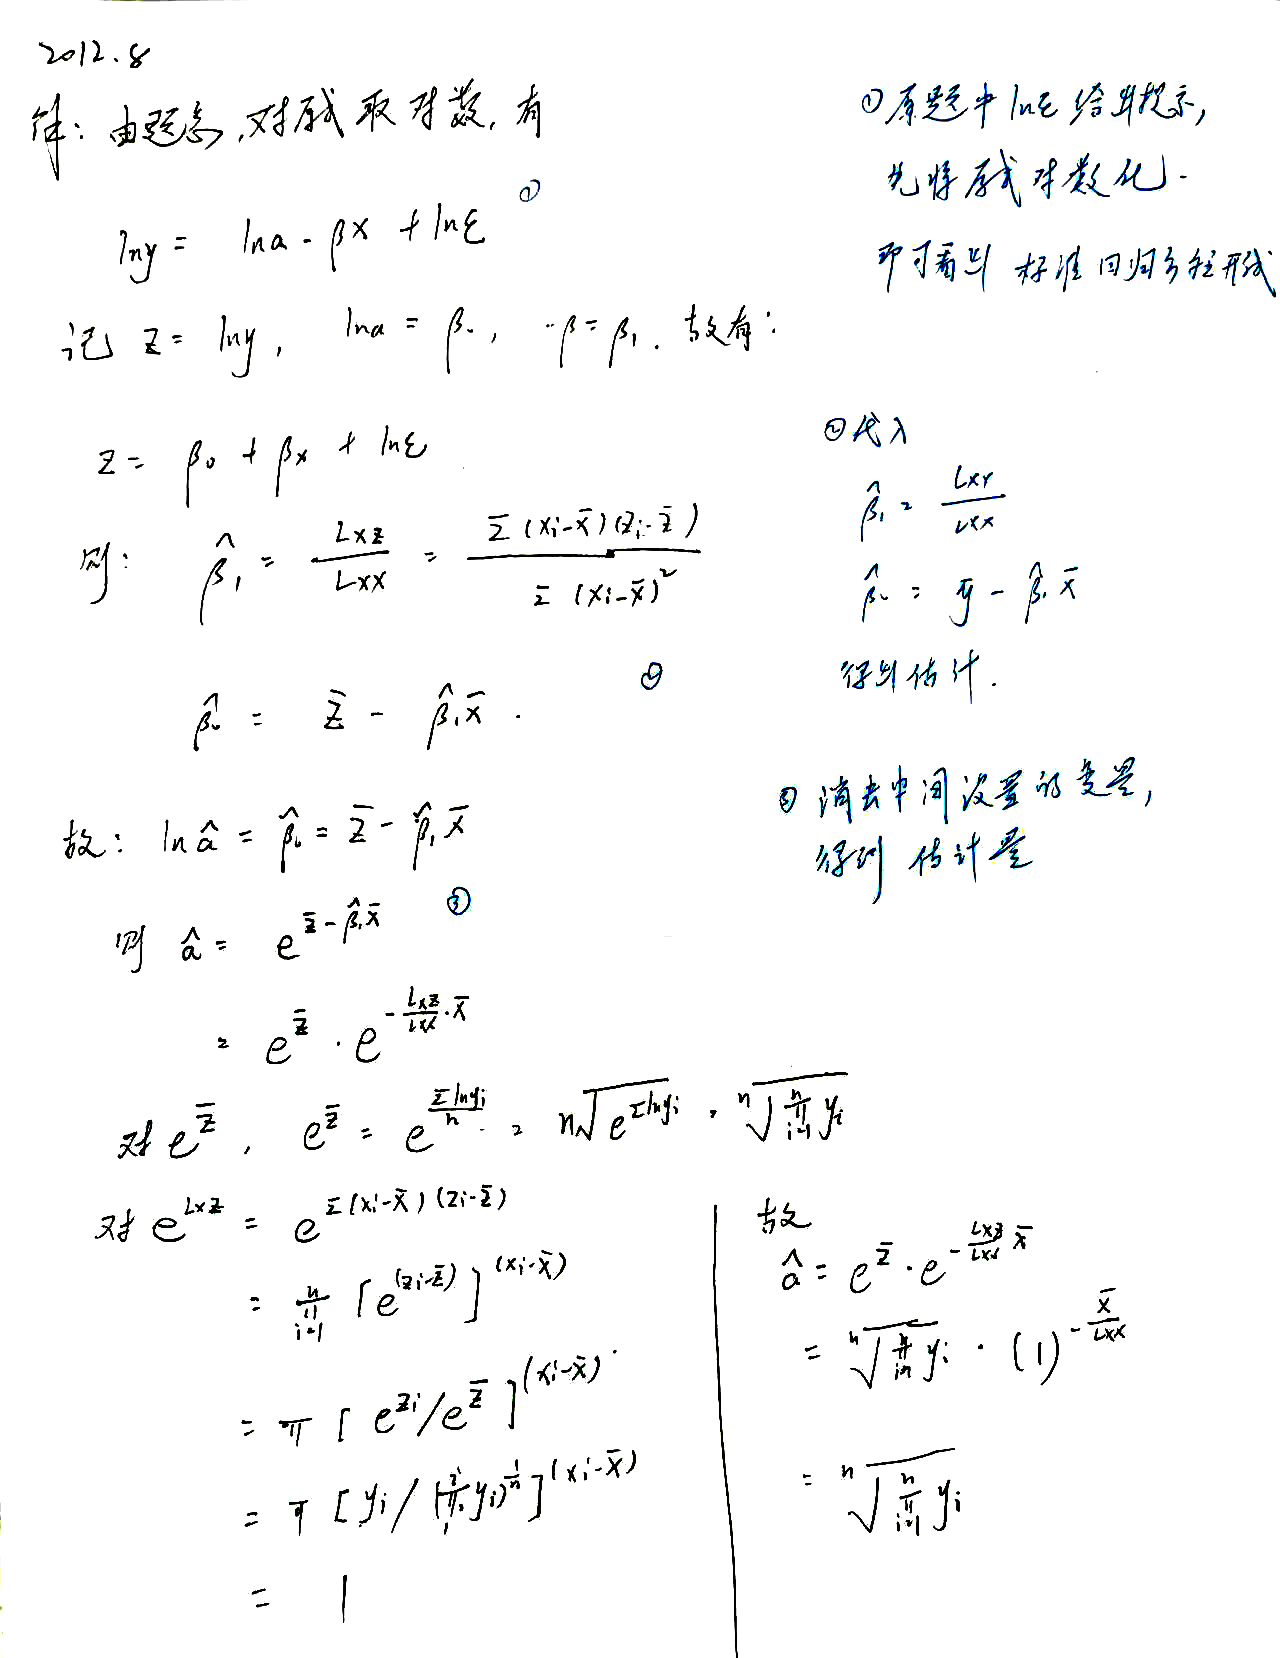 2012.8
解：由题意，对原式取对数，有
lny = lna - βx + lnε ①
记 z = lny, lna = β₀, -β = β₁. 故有：
z = β₀ + βx + lnε
则： β̂₁ = Lxz / Lxx = Σ(xi-x̄)(zi-z̄) / Σ(xi-x̄)²
β̂₀ = z̄ - β̂₁x̄ . ②
故： ln â = β̂₀ = z̄ - β̂₁x̄
则 â = e^(z̄-β̂₁x̄) ③
= e^z̄ · e^(-Lxz/Lxx · x̄)
对 e^z̄, e^z̄ = e^(Σlnyi/n) = ⁿ√(e^(Σlnyi)) = ⁿ√(∏_{i=1}^{n} yi)
对 e^Lxz = e^(Σ(xi-x̄)(zi-z̄))
= ∏_{i=1}^{n} [e^(zi-z̄)]^(xi-x̄)
= π [e^zi / e^z̄]^(xi-x̄)
= π [yi / (∏ yi)^(1/n)]^(xi-x̄)
= 1
故
â = e^z̄ · e^(-Lxz/Lxx x̄)
= ⁿ√(∏_{i=1}^{n} yi) · (1)^(-x̄/Lxx)
= ⁿ√(∏_{i=1}^{n} yi)
① 原题中 lnε 给出提示，
先将原式对数化.
即可看出 标准回归方程形式
② 代入
β̂₁ = Lxy / Lxx
β̂₀ = ȳ - β̂₁x̄
得出估计.
③ 消去中间设置的变量，
得到 估计量